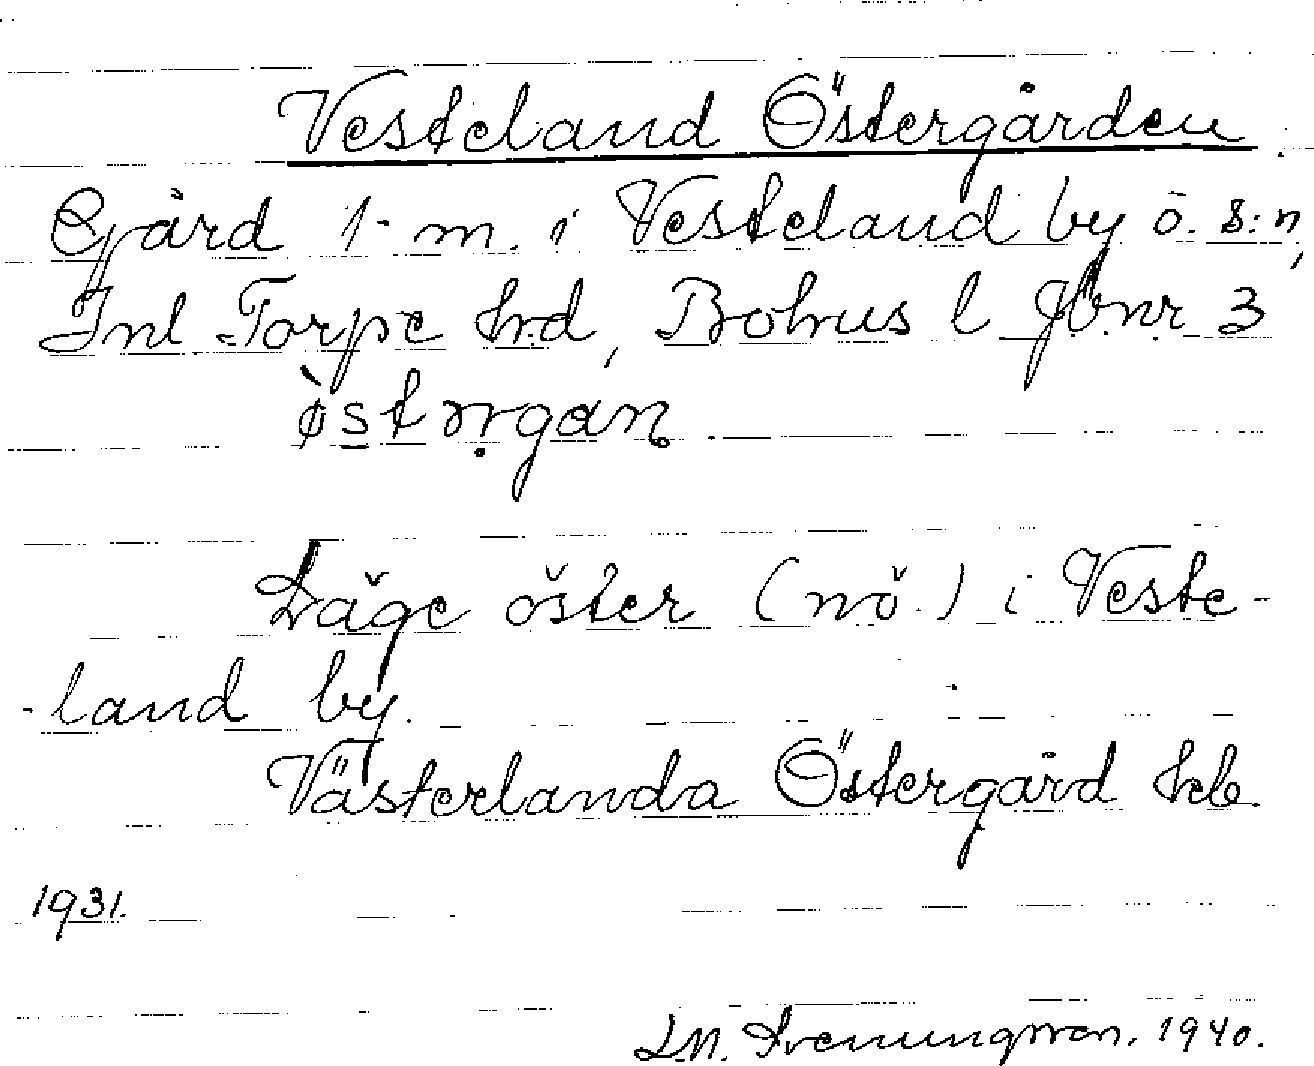 Vesteland Östergården
Gård 1 m. i Vesteland by o. s:n,
Inl Torpe hrd, Bohus l Jbnr 3
Läge öster (nö.) i Veste-
-land by.
Västerlanda Östergård
1931.
1940.